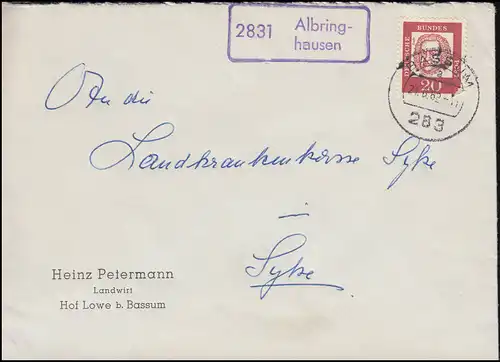 2831 Albring-
hausen
DEUTSCHE BUNDES
20
BASSUM
283
An die
Landkrankenkasse Syke
in
Syke
Heinz Petermann
Landwirt
Hof Lowe b. Bassum